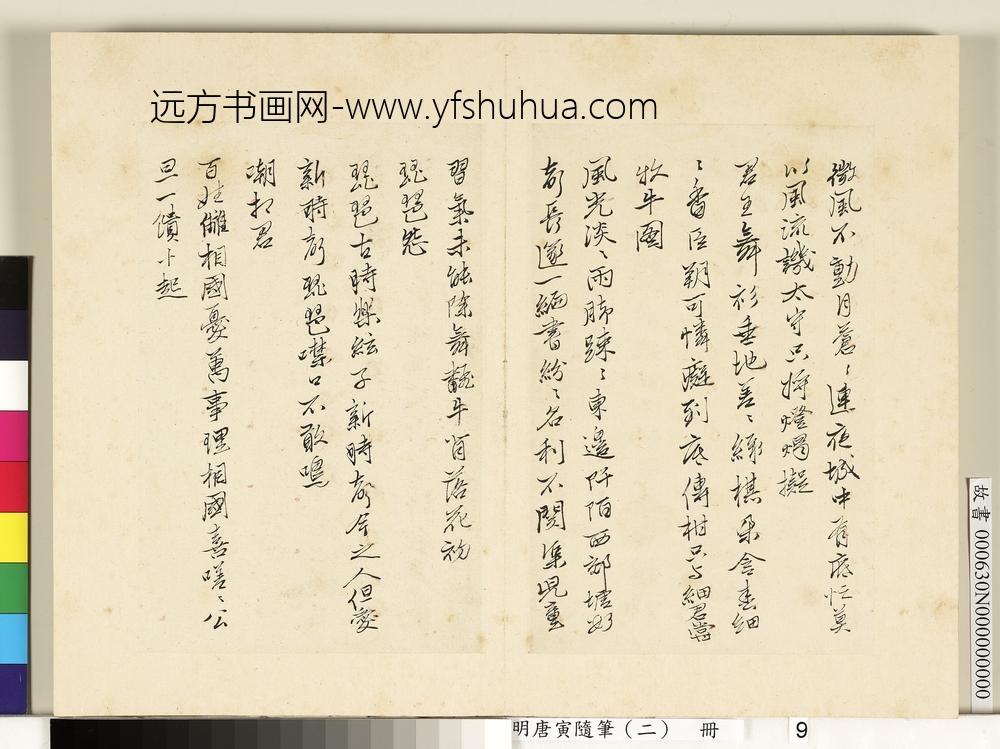 远方书画网-www.yfshuhua.com
微風不動月蒼〻連夜城中有底忙莫
以風流譏太守只將燈燭擬
君王舞衫垂地差〻綠棋朵含香細
〻香臣朔可憐癡到底傳柑只与細君嘗
牧牛圖
風光淡〻雨腳疎〻東邊阡陌西部塘
長遂一編書紛〻名利不関渠児童
習氣未能除舞牛背落花初
琵琶怨
琵琶古時樂絃子新時声今之人但愛
新時声琵琶噤口不敢鳴
嘲相君
百姓雠相國憂萬事理相國喜嗟〻公
旦一憤卜起
故書 000630N000000000
明唐寅隨筆（二） 冊 9